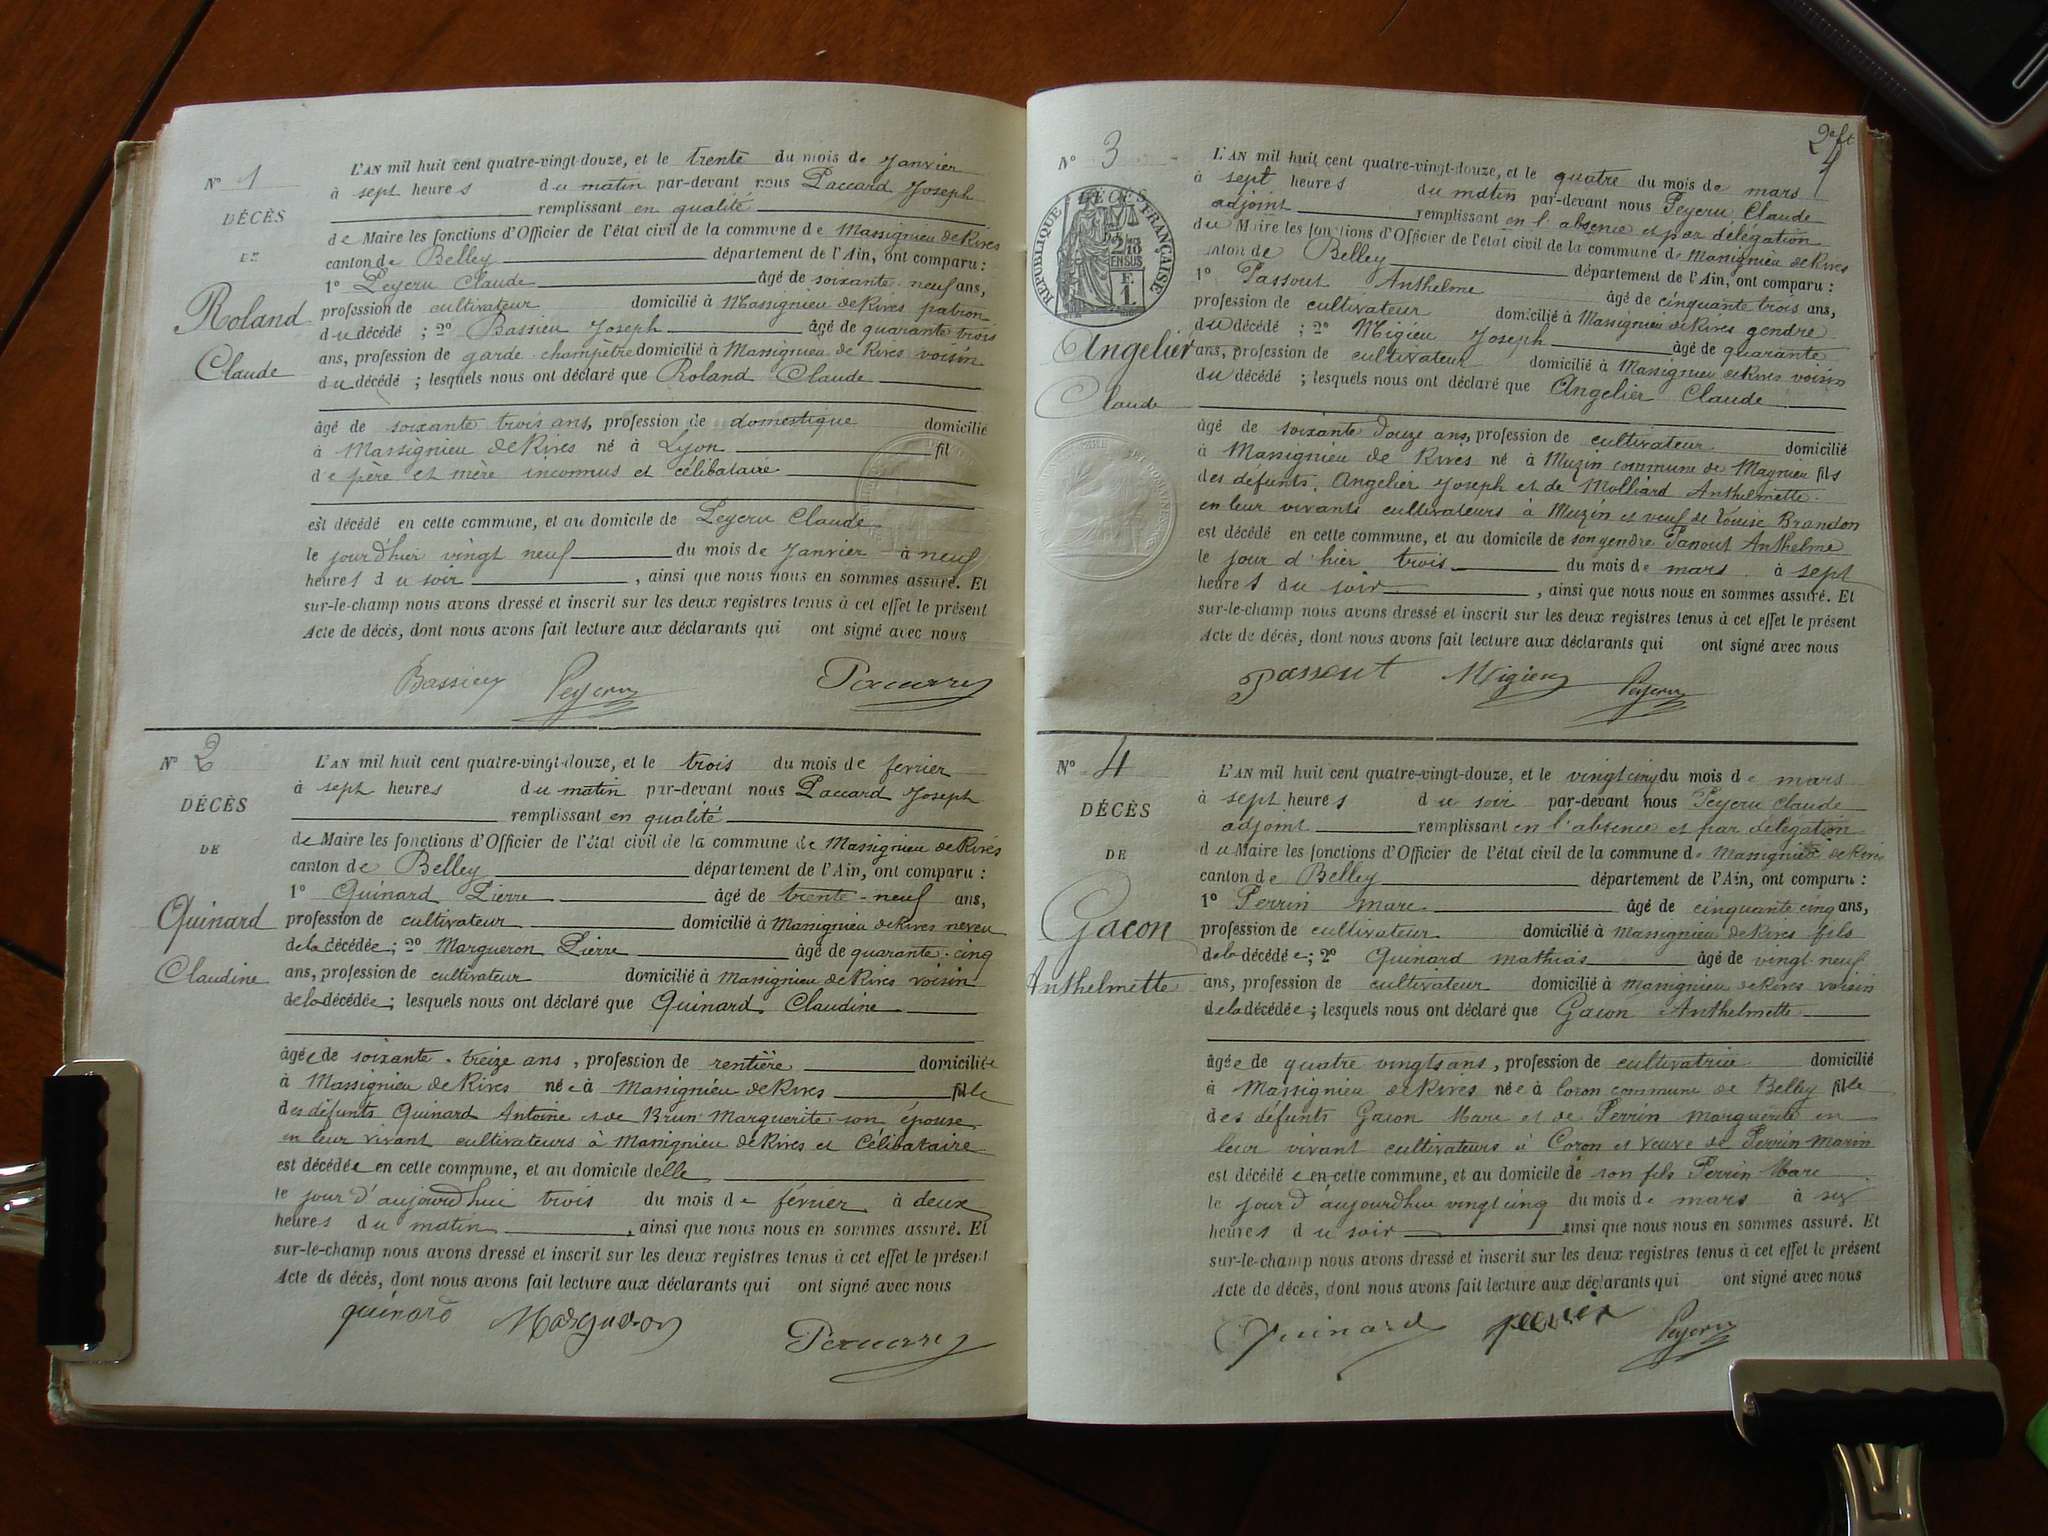 N° 1
DÉCÈS
DE
Roland
Claude
L'AN mil huit cent quatre-vingt-douze, et le trente du mois de Janvier
à sept heures du matin par-devant nous Paccard Joseph
remplissant en qualité
de Maire les fonctions d'Officier de l'état civil de la commune de Massignieu de Rives
canton de Belley département de l'Ain, ont comparu :
1° Peyeru Claude âgé de soixante-neuf ans,
profession de cultivateur domicilié à Massignieu de Rives patron
du décédé ; 2° Bassieu Joseph âgé de quarante trois
ans, profession de garde-champêtre domicilié à Massignieu de Rives voisin
du décédé ; lesquels nous ont déclaré que Roland Claude
âgé de soixante trois ans, profession de domestique domicilié
à Massignieu de Rives né à Lyon fil
de père et mère inconnus et célibataire
est décédé en cette commune, et au domicile de Peyeru Claude
le jour d'hier vingt neuf du mois de Janvier à neuf
heures du soir, ainsi que nous nous en sommes assuré. Et
sur-le-champ nous avons dressé et inscrit sur les deux registres tenus à cet effet le présent
Acte de décès, dont nous avons fait lecture aux déclarants qui ont signé avec nous
Bassieu Peyeru Paccard
N° 2
DÉCÈS
DE
Quinard
Claudine
L'AN mil huit cent quatre-vingt-douze, et le trois du mois de fevrier
à sept heures du matin par-devant nous Paccard Joseph
remplissant en qualité
de Maire les fonctions d'Officier de l'état civil de la commune de Massignieu de Rives
canton de Belley département de l'Ain, ont comparu :
1° Quinard Pierre âgé de trente-neuf ans,
profession de cultivateur domicilié à Massignieu de Rives neveu
de la décédée ; 2° Margueron Pierre âgé de quarante-cinq
ans, profession de cultivateur domicilié à Massignieu de Rives voisin
de la décédée ; lesquels nous ont déclaré que Quinard Claudine
âgée de soixante-treize ans, profession de rentière domiciliée
à Massignieu de Rives née à Massignieu de Rives fille
des défunts Quinard Antoine et de Brun Marguerite son épouse
en leur vivant cultivateurs à Massignieu de Rives et Célibataire
est décédée en cette commune, et au domicile d'elle
le jour d'aujourd'hui trois du mois de février à deux
heures du matin, ainsi que nous nous en sommes assuré. Et
sur-le-champ nous avons dressé et inscrit sur les deux registres tenus à cet effet le présent
Acte de décès, dont nous avons fait lecture aux déclarants qui ont signé avec nous
quinard Margueron Paccard
2e ft
4
N° 3
DÉCÈS
RÉPUBLIQUE FRANÇAISE
2/10 EN SUS
F. 1
Angelier
Claude
L'AN mil huit cent quatre-vingt-douze, et le quatre du mois de mars
à sept heures du matin par-devant nous Peyeru Claude
adjoint remplissant en l'absence et par délégation
du Maire les fonctions d'Officier de l'état civil de la commune de Massignieu de Rives
canton de Belley département de l'Ain, ont comparu :
1° Passout Anthelme âgé de cinquante trois ans,
profession de cultivateur domicilié à Massignieu de Rives gendre
du décédé ; 2° Migieu Joseph âgé de quarante
ans, profession de cultivateur domicilié à Massignieu de Rives voisin
du décédé ; lesquels nous ont déclaré que Angelier Claude
âgé de soixante douze ans, profession de cultivateur domicilié
à Massignieu de Rives né à Muzin commune de Magnieu fils
des défunts Angelier Joseph et de Molliard Anthelmette
en leur vivants cultivateurs à Muzin et veuf de Louise Brandon
est décédé en cette commune, et au domicile de son gendre Passout Anthelme
le jour d'hier trois du mois de mars à sept
heures du soir, ainsi que nous nous en sommes assuré. Et
sur-le-champ nous avons dressé et inscrit sur les deux registres tenus à cet effet le présent
Acte de décès, dont nous avons fait lecture aux déclarants qui ont signé avec nous
Passout Migieu Peyeru
N° 4
DÉCÈS
DE
Gacon
Anthelmette
L'AN mil huit cent quatre-vingt-douze, et le vingt cinq du mois de mars
à sept heures du soir par-devant nous Peyeru Claude
adjoint remplissant en l'absence et par délégation
du Maire les fonctions d'Officier de l'état civil de la commune de Massignieu de Rives
canton de Belley département de l'Ain, ont comparu :
1° Perrin Marc âgé de cinquante cinq ans,
profession de cultivateur domicilié à Massignieu de Rives fils
de la décédée ; 2° Quinard Mathias âgé de vingt-neuf
ans, profession de cultivateur domicilié à Massignieu de Rives voisin
de la décédée ; lesquels nous ont déclaré que Gacon Anthelmette
âgée de quatre vingts ans, profession de cultivatrice domicilié
à Massignieu de Rives née à Coron commune de Belley fille
des défunts Gacon Marc et de Perrin Marguerite en
leur vivant cultivateurs à Coron et veuve de Perrin Marin
est décédée en cette commune, et au domicile de son fils Perrin Marc
le jour d'aujourdhui vingt cinq du mois de mars à six
heures du soir ainsi que nous nous en sommes assuré. Et
sur-le-champ nous avons dressé et inscrit sur les deux registres tenus à cet effet le présent
Acte de décès, dont nous avons fait lecture aux déclarants qui ont signé avec nous
Quinard perrin Peyeru